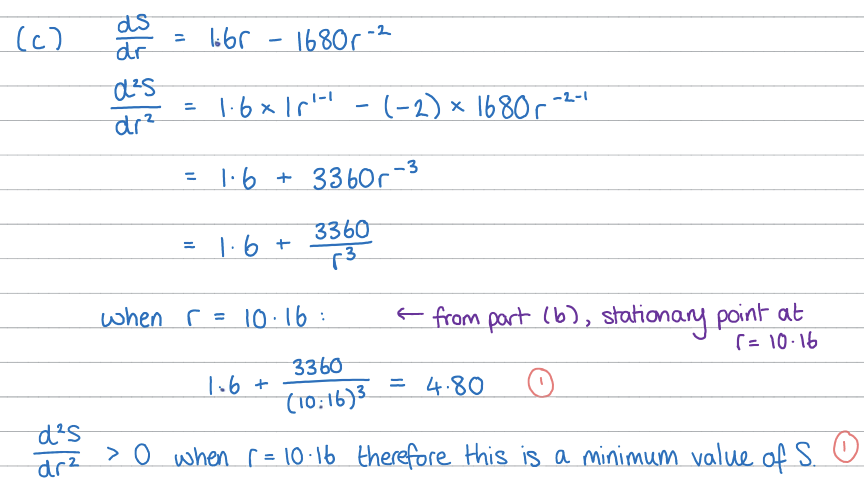 (c) dS/dr = 1.6r - 1680r⁻²
d²S/dr² = 1.6 × 1r¹⁻¹ - (-2) × 1680r⁻²⁻¹
= 1.6 + 3360r⁻³
= 1.6 + 3360/r³
when r = 10.16 : ← from part (b), stationary point at
r = 10.16
1.6 + 3360/(10.16)³ = 4.80 ①
d²S/dr² > 0 when r = 10.16 therefore this is a minimum value of S. ①